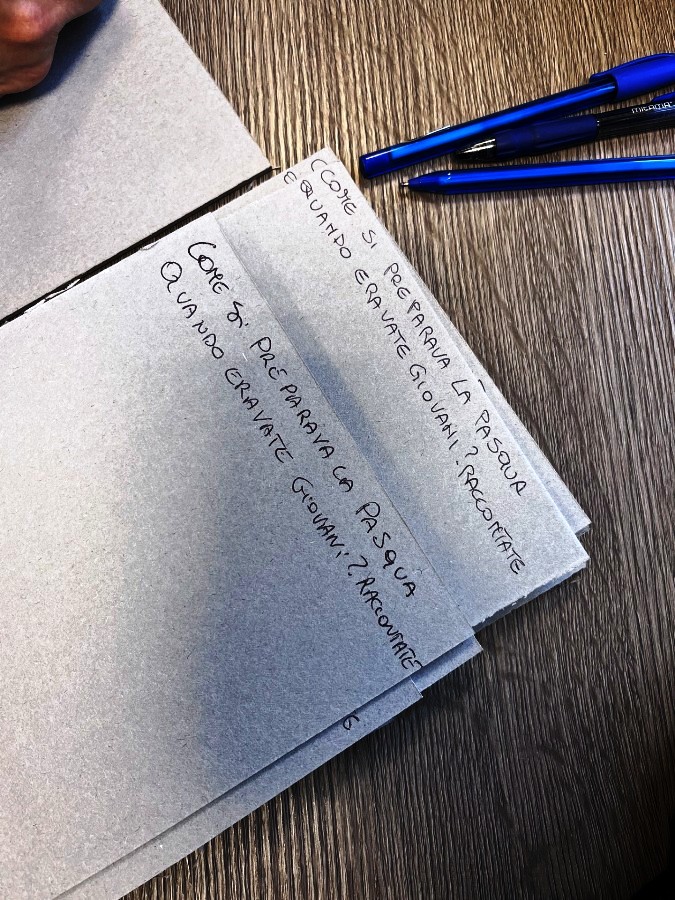 COME SI PREPARAVA LA PASQUA
QUANDO ERAVATE GIOVANI? RACCONTATE
(COME SI PREPARAVA LA PASQUA
E QUANDO ERAVATE GIOVANI? RACCONTATE
MITAMA